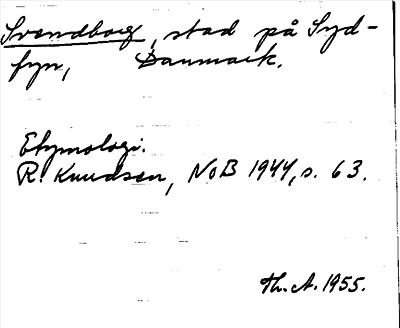 Svendborg, stad på Syd-
fyn, Danmark.
Etymologi.
R. Knudsen, NoB 1944, s. 63.
Th. A. 1955.